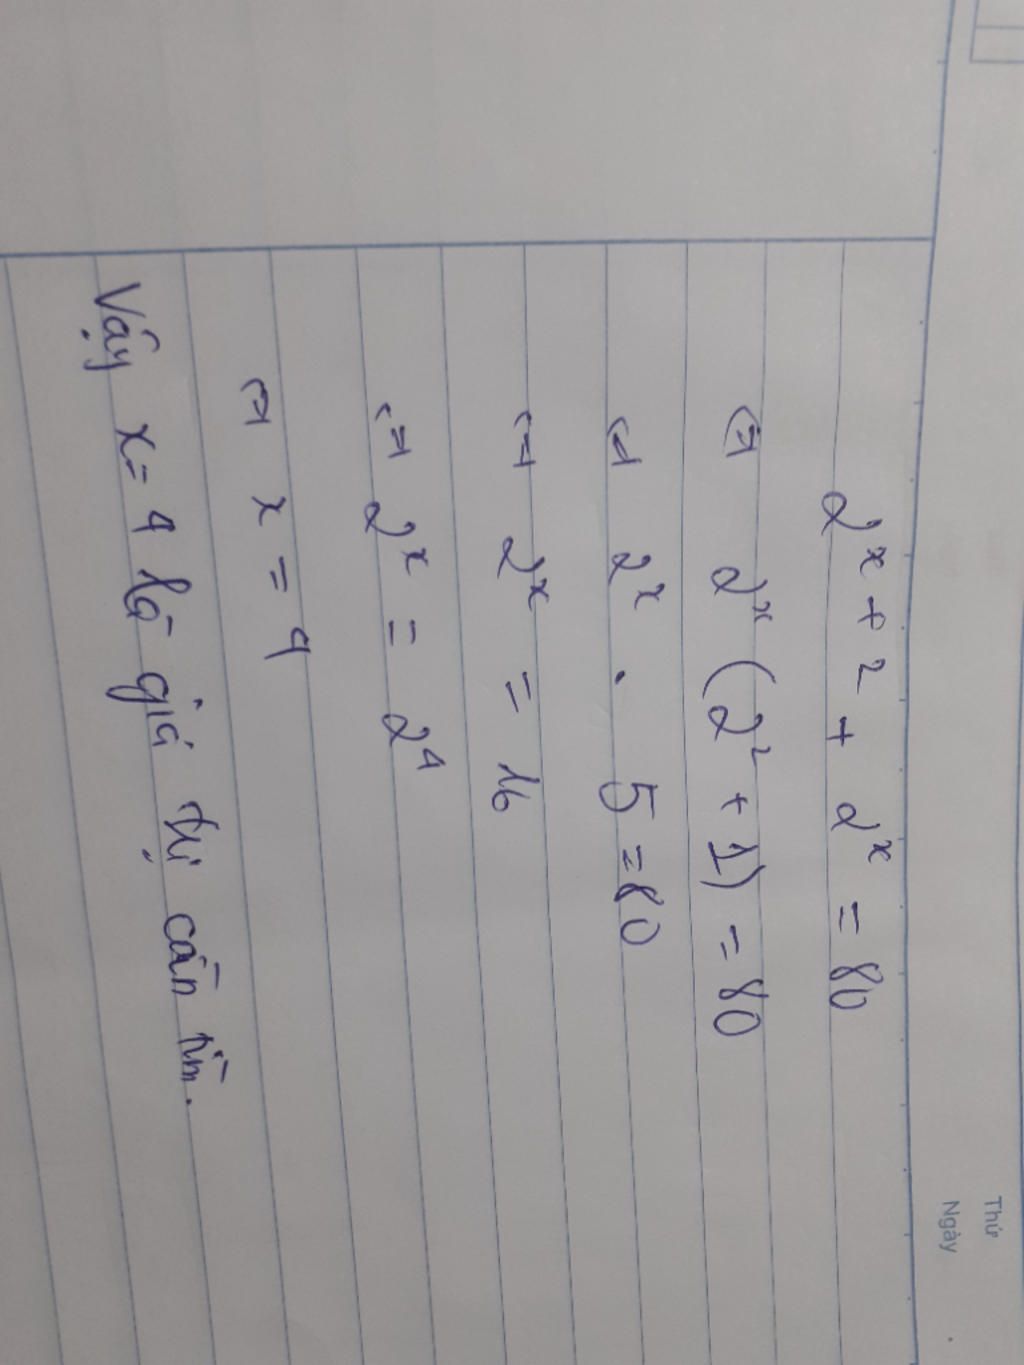 Thứ
Ngày
2^{x+2} + 2^x = 80
<=> 2^x (2^2 + 1) = 80
<=> 2^x . 5 = 80
<=> 2^x = 16
<=> 2^x = 2^4
<=> x = 4
Vậy x = 4 là giá trị cần tìm.